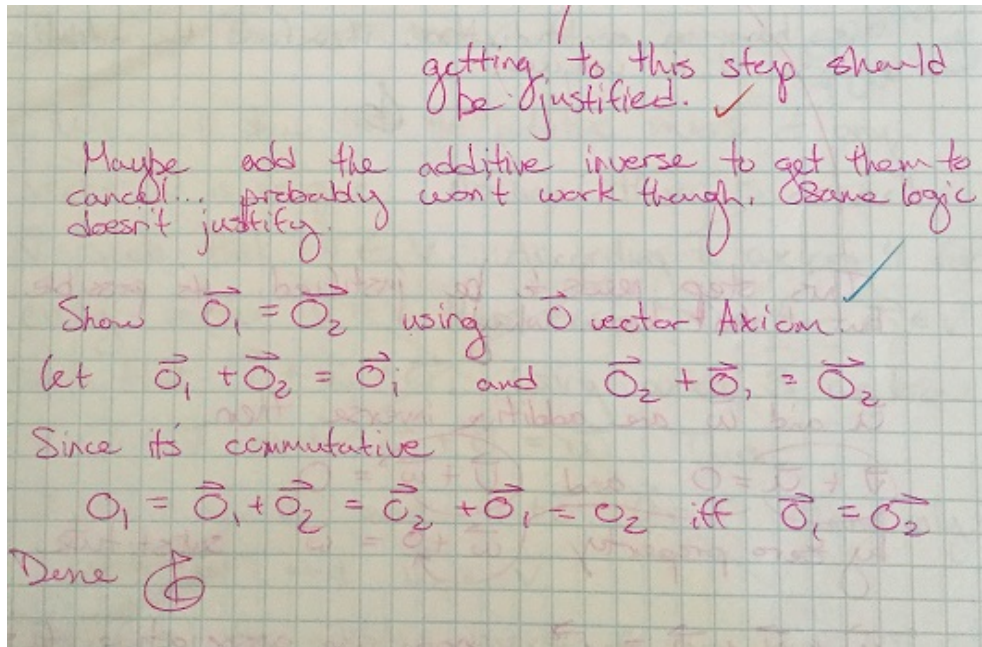 getting to this step should
be justified. ✓
Maybe add the additive inverse to get them to
cancel... probably won't work though. Same logic
doesn't justify.
Show 0⃗₁ = 0⃗₂ using 0⃗ vector Axiom. ✓
let 0⃗₁ + 0⃗₂ = 0⃗₁ and 0⃗₂ + 0⃗₁ = 0⃗₂
Since it's commutative
0₁ = 0⃗₁ + 0⃗₂ = 0⃗₂ + 0⃗₁ = 0₂ iff 0⃗₁ = 0⃗₂
Done